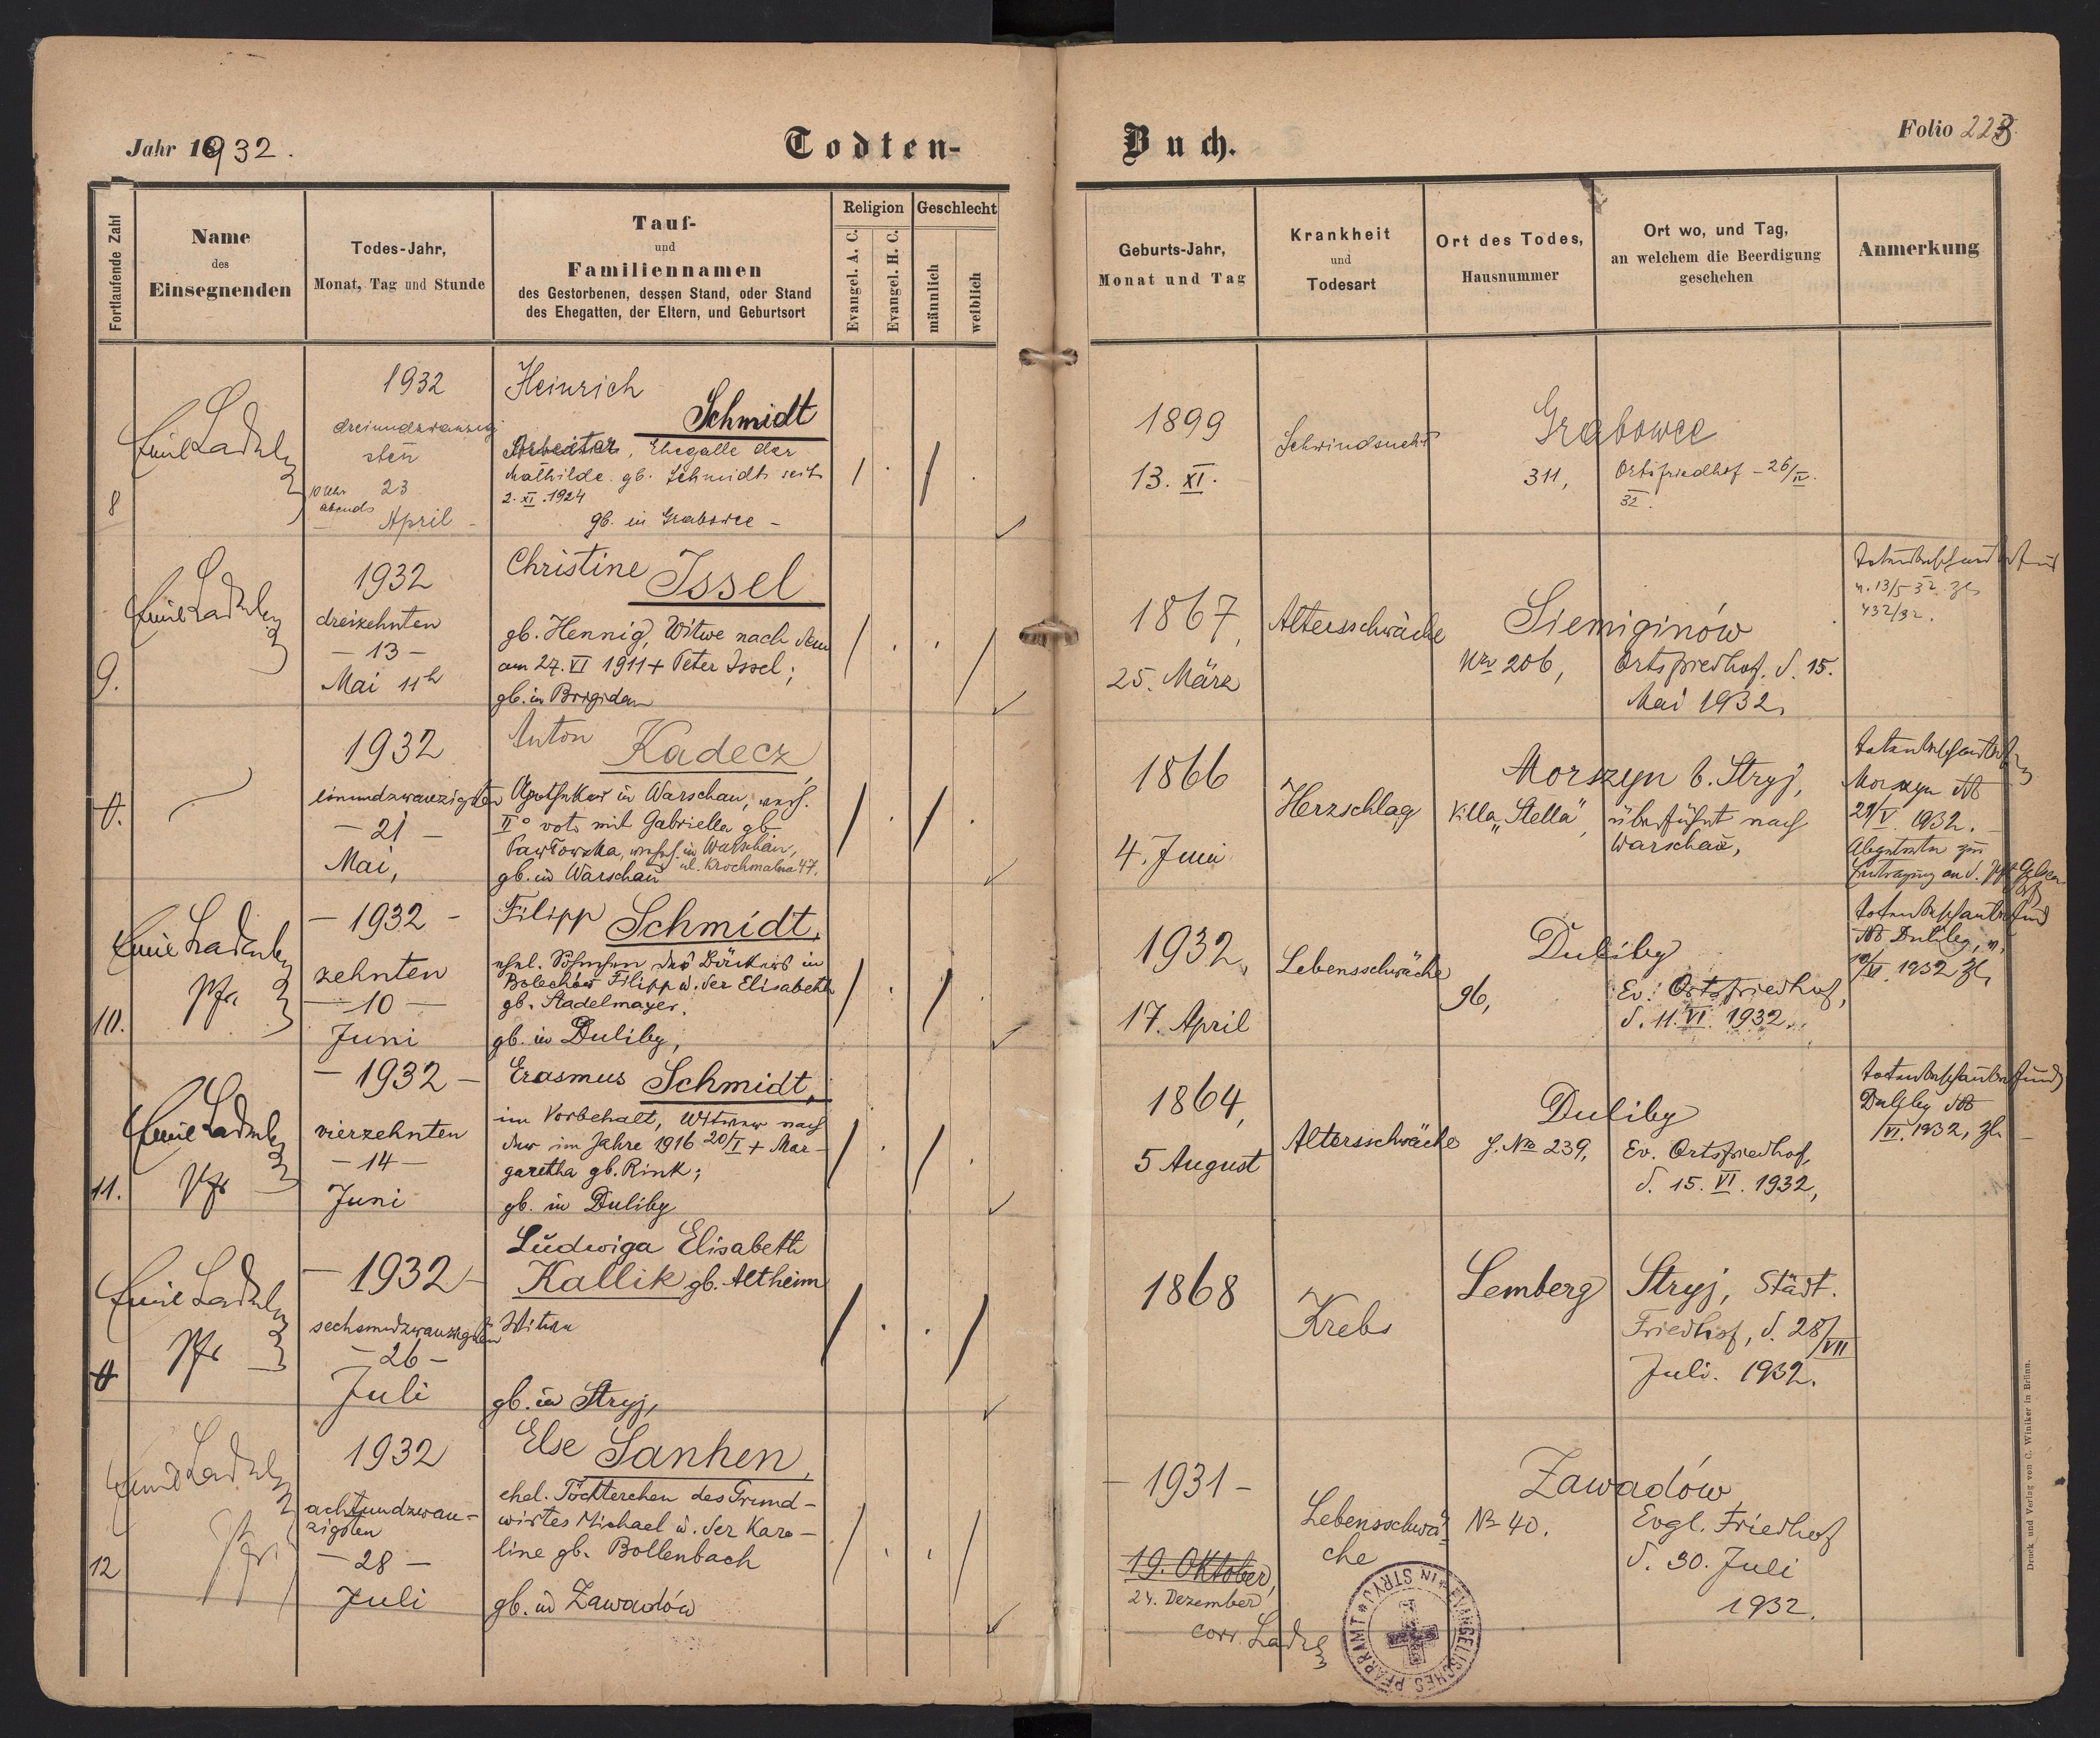 Jahr 1932.
Todten-
Buch.
Folio 223
Fortlaufende Zahl
Name
des
Einsegnenden
Todes-Jahr,
Monat, Tag und Stunde
Tauf-
und
Familiennamen
des Gestorbenen, dessen Stand, oder Stand
des Ehegatten, der Eltern, und Geburtsort
Religion
Evangel. A. C.
Evangel. H. C.
Geschlecht
männlich
weiblich
Geburts-Jahr,
Monat und Tag
Krankheit
und
Todesart
Ort des Todes,
Hausnummer
Ort wo, und Tag,
an welchem die Beerdigung
geschehen
Anmerkung
8
1932
dreiundzwanzig
sten
10 Uhr 23
abends
April -
Heinrich
Schmidt
Arbeiter, Ehegatte der
Mathilde gb. Schmidt seit
2. XI. 1924
gb. in Grabowce -
1899
13. XI.
Schwindsucht
Grabowce
311,
Ortsfriedhof - 26/IV.
32.
9.
1932
dreizehnten
- 13 -
Mai 11h
Christine Issel
gb. Hennig, Witwe nach dem
am 27. VI 1911 + Peter Issel;
gb. in Brigidau
1867,
25. März
Altersschwäche
Siemiginów
Nro 206,
Ortsfriedhof. d. 15.
Mai 1932,
n. 13/5 32. Zl
432/32.
0.
1932
einundzwanzigsten
- 21 -
Mai,
Anton Kadecz
Apotheker in Warschau, verh.
II° voto mit Gabriella gb
Pawłowska, wohnh. in Warschau,
ul. Krochmalna 47.
gb. in Warschau
1866
4. Juni
Herzschlag
Morszyn b. Stryj,
Villa „Stella"
überführt nach
Warschau,
Morszyn
1932.
10.
Pfr
- 1932 -
zehnten
- 10 -
Juni
Filipp Schmidt,
ehel. Söhnchen des Bäckers in
Bolechów Filipp u. der Elisabeth
gb. Stadelmayer.
gb. in Duliby,
1932,
17. April
Lebensschwäche
Duliby
96,
Ev. Ortsfriedhof,
d. 11. VI. 1932.
Duliby, n.
10/VI. 1932 Zl,
11.
Pfr
- 1932 -
vierzehnten
- 14 -
Juni
Erasmus Schmidt,
im Vorbehalt, Witwer nach
der im Jahre 1916 20/I + Mar-
garetha gb. Rink;
gb. in Duliby
1864,
5 August
Altersschwäche
Duliby
H. No 239,
Ev. Ortsfriedhof,
d. 15. VI. 1932,
Duliby
/VI. 1932, Zl.
0
Pfr
- 1932 -
sechsundzwanzigsten
- 26 -
Juli
Ludwiga Elisabeth
Kallik gb. Altheim
Witwe
gb. in Stryj,
1868
Krebs
Lemberg
Stryj, Städt.
Friedhof, d. 28/VII
Juli. 1932.
12
Pfr.
1932
achtundzwan-
zigsten
- 28 -
Juli
Else Sanhen,
ehel. Töchterchen des Grund-
wirtes Michael u. der Karo-
line gb. Bollenbach
gb. in Zawadów
- 1931 -
19. Oktober,
24. Dezember
corr.
Lebensschwä-
che
Zawadów
No 40.
Evgl. Friedhof
d. 30. Juli
1932.
EVANGELISCHES PFARRAMT IN STRYJ
Druck und Verlag von C. Winiker in Brünn.